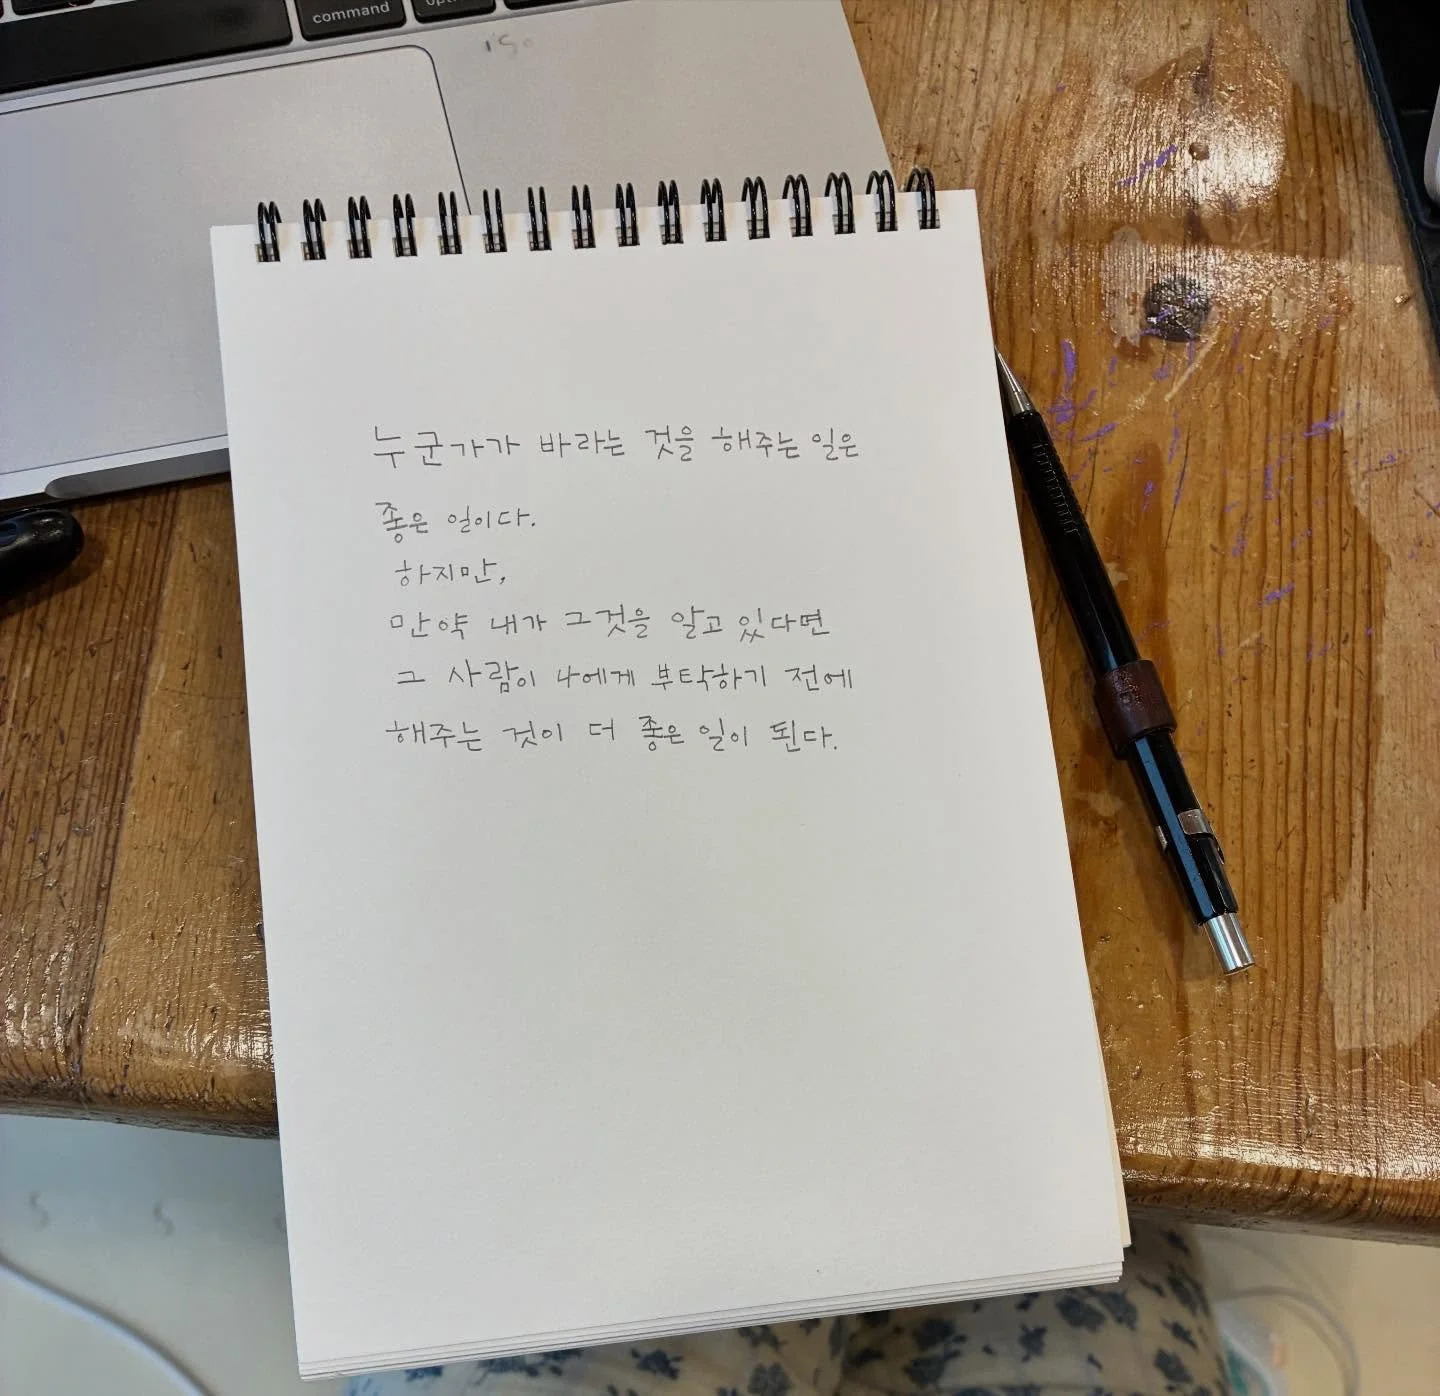 command
누군가가 바라는 것을 해주는 일은
좋은 일이다.
하지만,
만약 내가 그것을 알고 있다면
그 사람이 나에게 부탁하기 전에
해주는 것이 더 좋은 일이 된다.